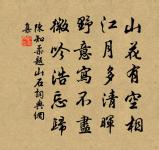 山花有空相
江月多清暉
野意寫不盡
微吟浩忘歸
陳知柔題山石詞典網
集